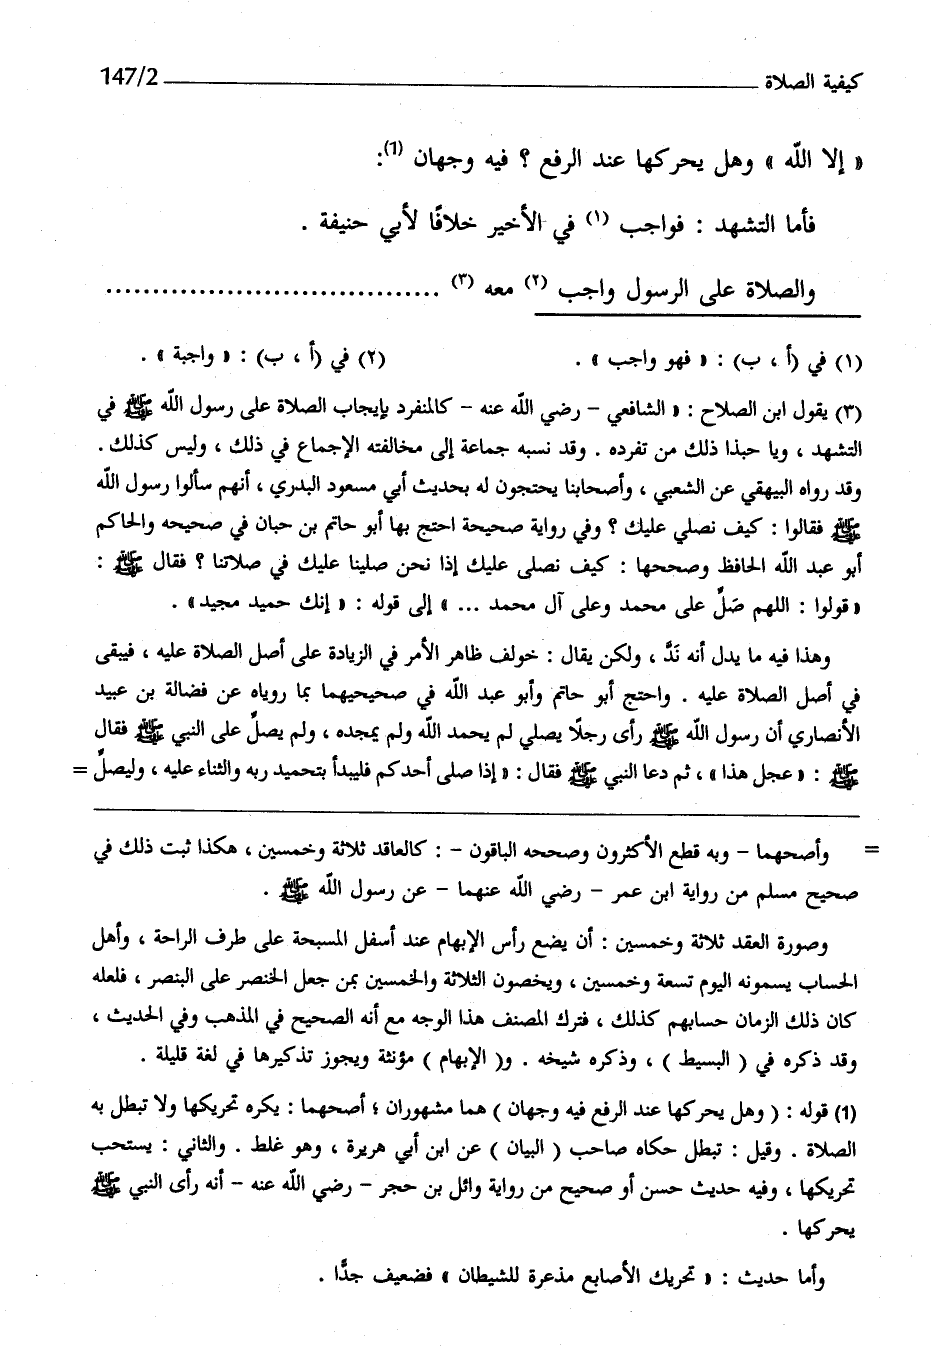 كيفية الصلاة 147/2
« إلا الله » وهل يحركها عند الرفع ؟ فيه وجهان (1):
فأما التشهد : فواجب (١) في الأخير خلافًا لأبي حنيفة .
والصلاة على الرسول واجب (٢) معه (٣) ...................................
(١) في (أ ، ب) : « فهو واجب » . (٢) في (أ ، ب) : « واجبة » .
(٣) يقول ابن الصلاح : « الشافعي – رضي الله عنه – كالمنفرد بإيجاب الصلاة على رسول الله ﷺ في
التشهد ، ويا حبذا ذلك من تفرده . وقد نسبه جماعة إلى مخالفته الإجماع في ذلك ، وليس كذلك .
وقد رواه البيهقي عن الشعبي ، وأصحابنا يحتجون له بحديث أبي مسعود البدري ، أنهم سألوا رسول الله
ﷺ فقالوا : كيف نصلي عليك ؟ وفي رواية صحيحة احتج بها أبو حاتم بن حبان في صحيحه والحاكم
أبو عبد الله الحافظ وصححها : كيف نصلى عليك إذا نحن صلينا عليك في صلاتنا ؟ فقال ﷺ :
« قولوا : اللهم صَلِّ على محمد وعلى آل محمد ... » إلى قوله : « إنك حميد مجيد» .
وهذا فيه ما يدل أنه نَدَّ ، ولكن يقال : خولف ظاهر الأمر في الزيادة على أصل الصلاة عليه ، فيبقى
في أصل الصلاة عليه . واحتج أبو حاتم وأبو عبد الله في صحيحيهما بما روياه عن فضالة بن عبيد
الأنصاري أن رسول الله ﷺ رأى رجلًا يصلي لم يحمد الله ولم يمجده ، ولم يصلِّ على النبي ﷺ فقال
ﷺ : « عجل هذا » ، ثم دعا النبي ﷺ فقال : « إذا صلى أحدكم فليبدأ بتحميد ربه والثناء عليه ، وليصلِّ =
= وأصحهما – وبه قطع الأكثرون وصححه الباقون – : كالعاقد ثلاثة وخمسين ، هكذا ثبت ذلك في
صحيح مسلم من رواية ابن عمر – رضي الله عنهما – عن رسول الله ﷺ .
وصورة العقد ثلاثة وخمسين : أن يضع رأس الإبهام عند أسفل المسبحة على طرف الراحة ، وأهل
الحساب يسمونه اليوم تسعة وخمسين ، ويخصون الثلاثة والخمسين بمن جعل الخنصر على البنصر ، فلعله
كان ذلك الزمان حسابهم كذلك ، فترك المصنف هذا الوجه مع أنه الصحيح في المذهب وفي الحديث ،
وقد ذكره في ( البسيط ) ، وذكره شيخه . و( الإبهام ) مؤنثة ويجوز تذكيرها في لغة قليلة .
(1) قوله : ( وهل يحركها عند الرفع فيه وجهان ) هما مشهوران ؛ أصحهما : يكره تحريكها ولا تبطل به
الصلاة . وقيل : تبطل حكاه صاحب ( البيان ) عن ابن أبي هريرة ، وهو غلط . والثاني : يستحب
تحريكها ، وفيه حديث حسن أو صحيح من رواية وائل بن حجر – رضي الله عنه – أنه رأى النبي ﷺ
يحركها .
وأما حديث : « تحريك الأصابع مذعرة للشيطان » فضعيف جدًّا .